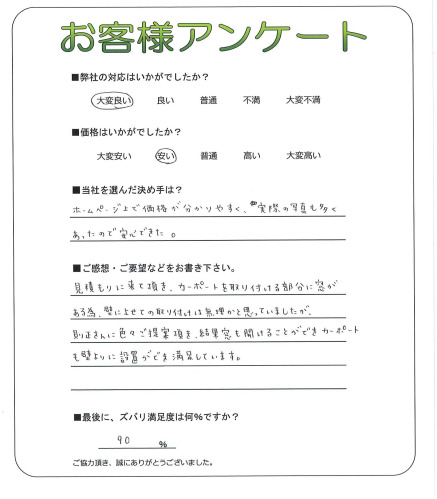 お客様アンケート
■弊社の対応はいかがでしたか？
大変良い 良い 普通 不満 大変不満
■価格はいかがでしたか？
大変安い 安い 普通 高い 大変高い
■当社を選んだ決め手は？
ホームページ上で価格が分かりやすく、実際の写真も多く
あったので安心できた。
■ご感想・ご要望などをお書き下さい。
見積もりに来て頂き、カーポートを取り付ける部分に窓が
ある為、壁によせての取り付けは無理かと思っていましたが、
則正さんに色々ご提案頂き、結果窓も開けることができカーポート
も壁よりに設置ができ満足しています。
■最後に、ズバリ満足度は何%ですか？
90 %
ご協力頂き、誠にありがとうございました。